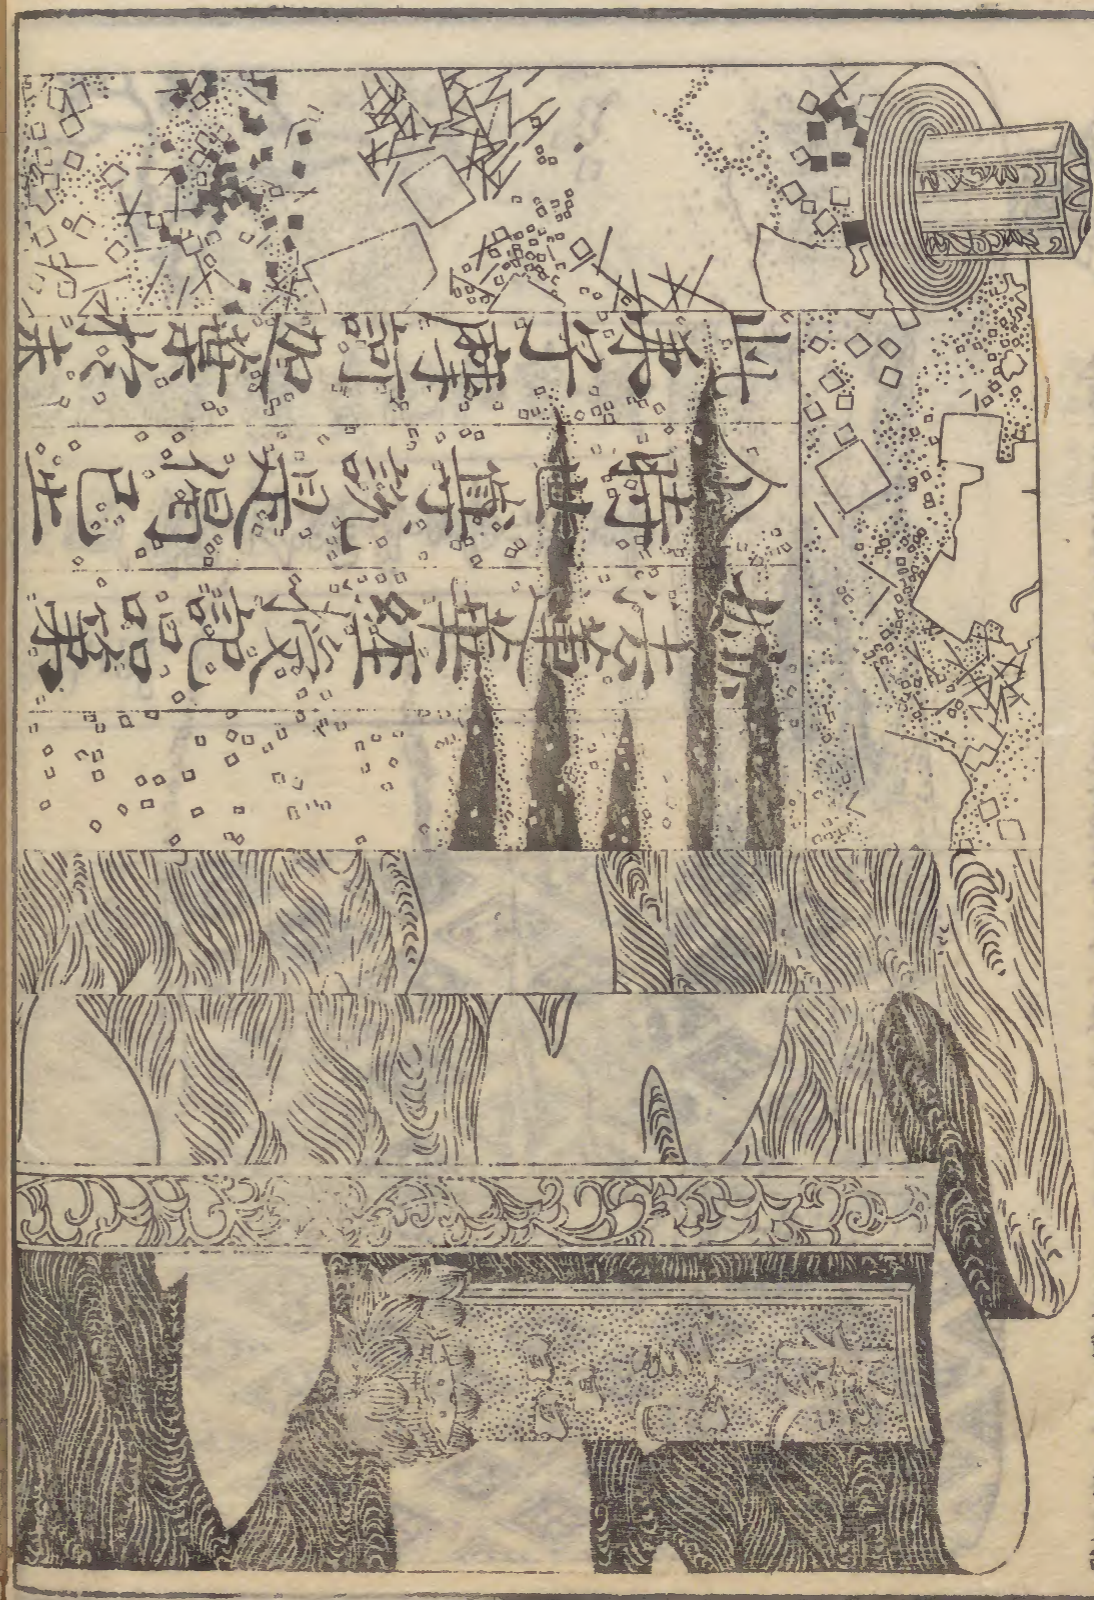 妙法蓮華經授記品第
尒時世尊説是偈已告
此弟子摩訶迦葉於未